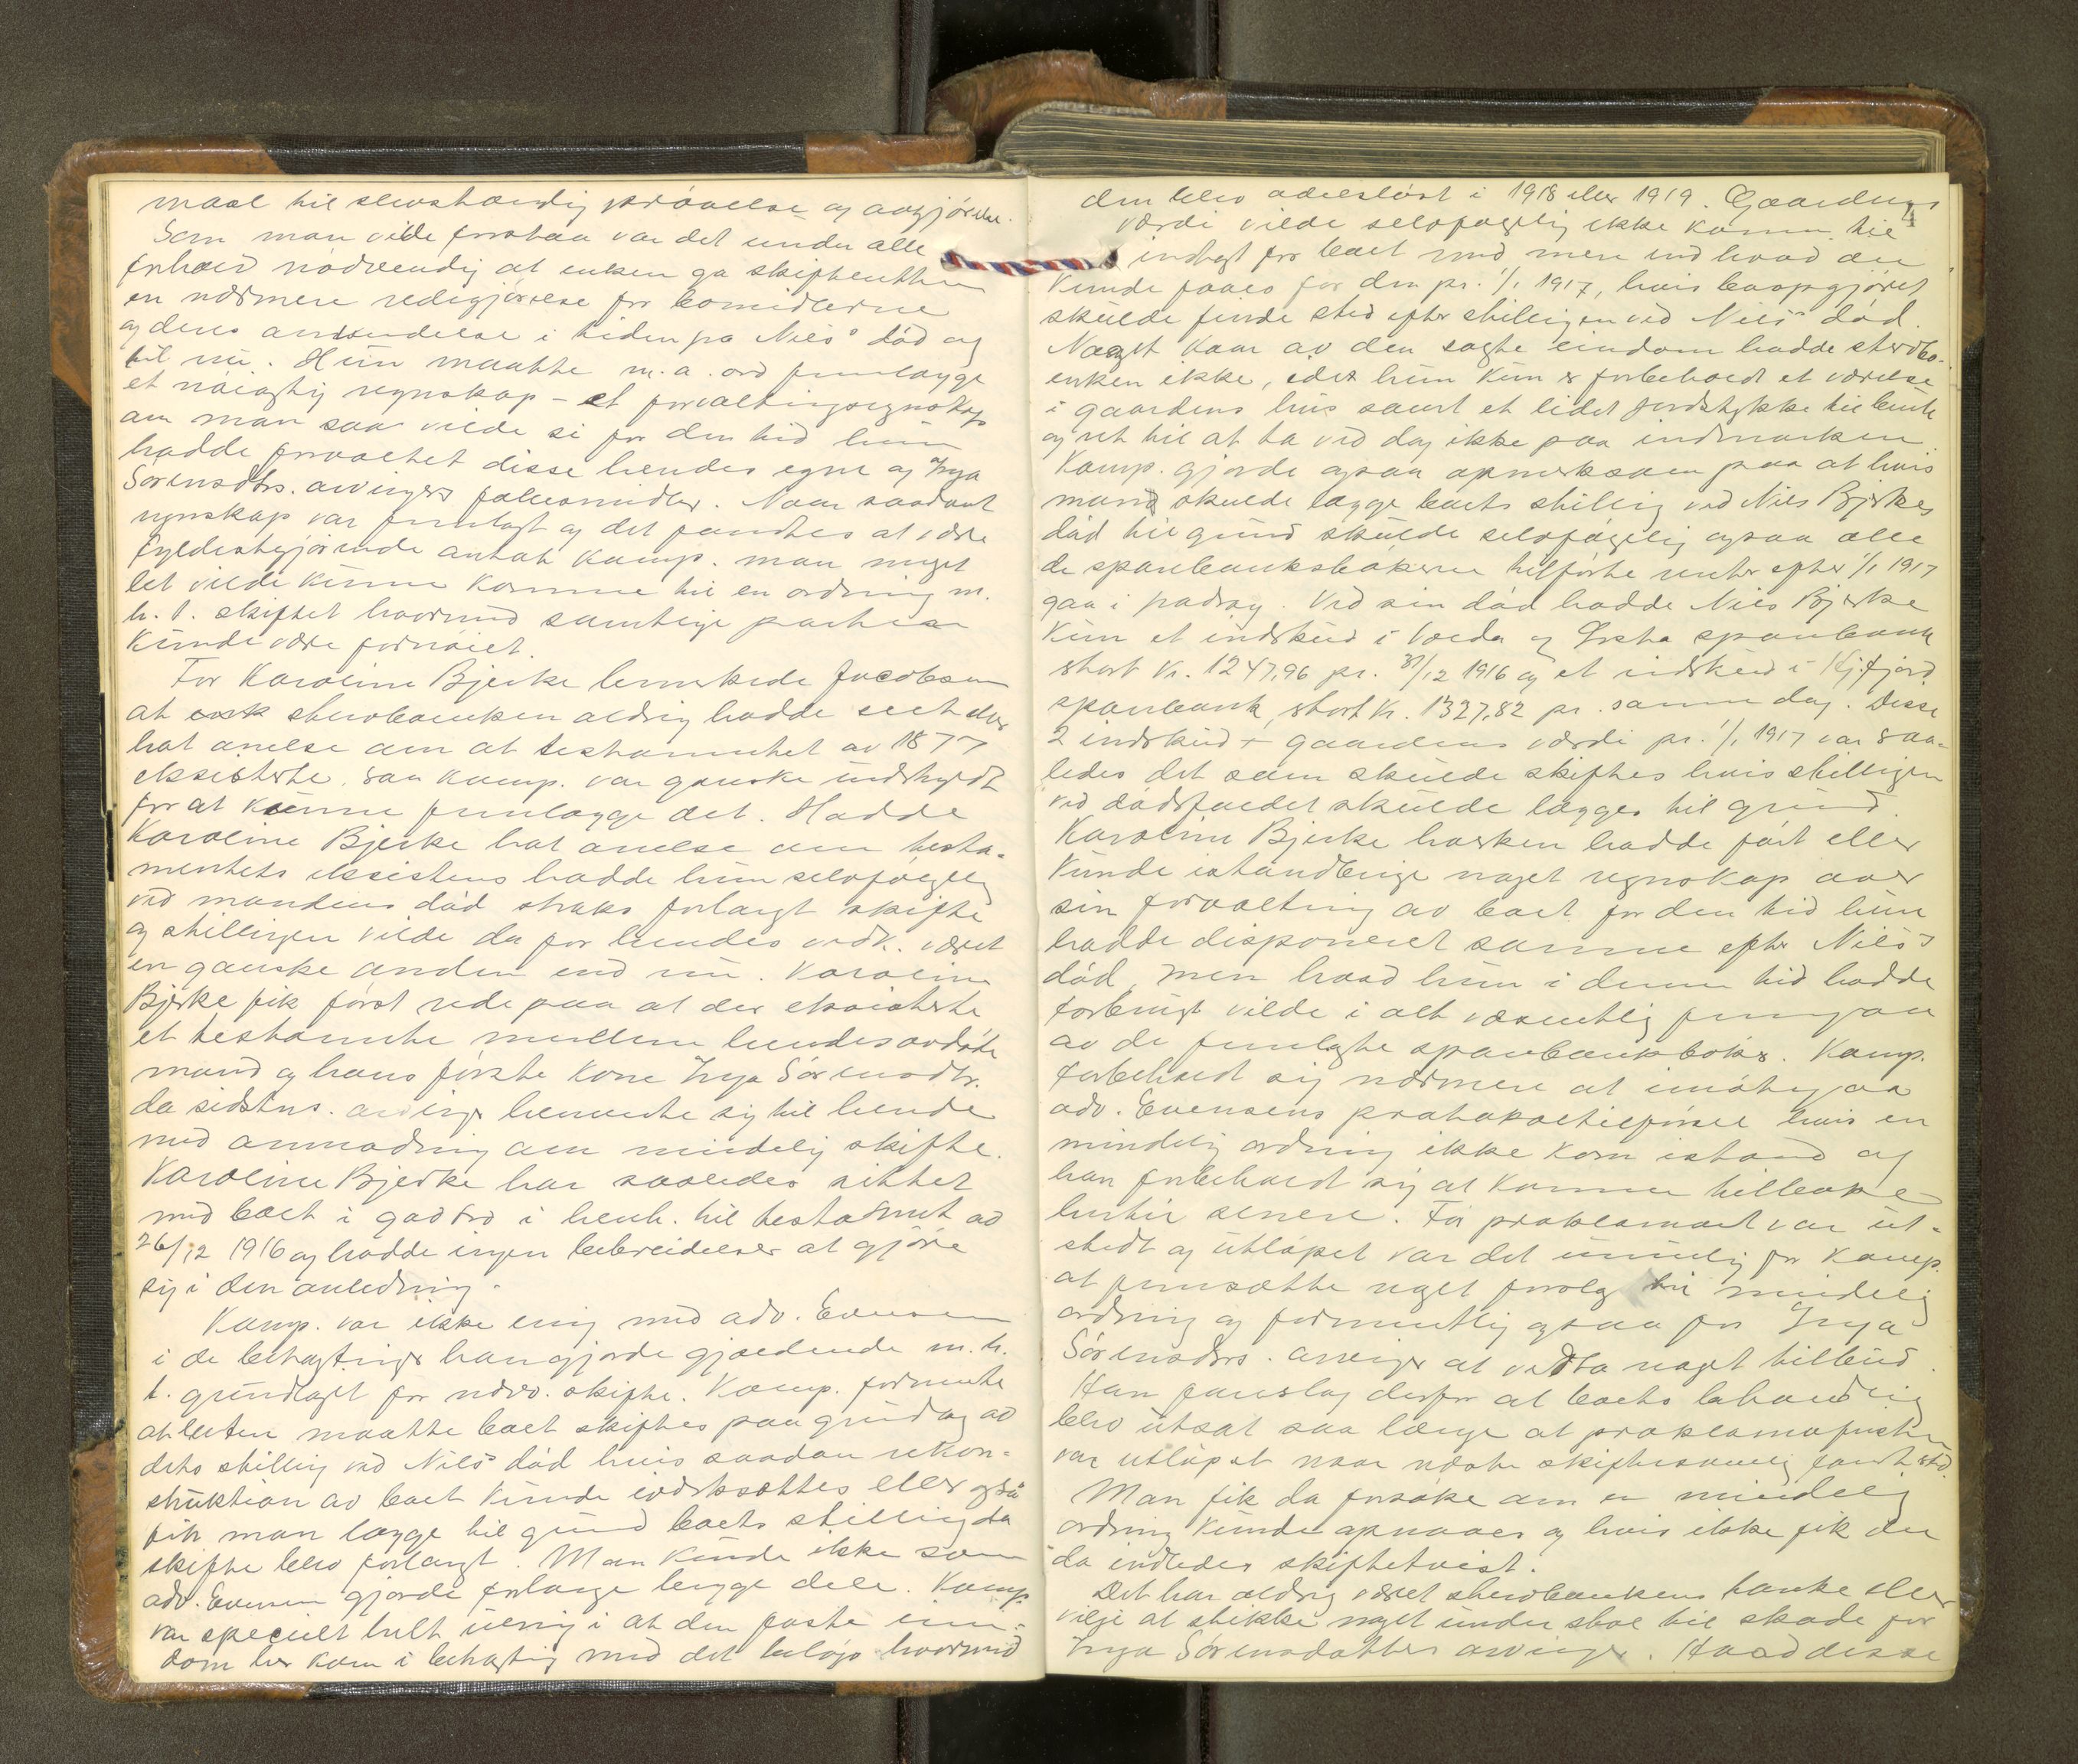 maal til selvstændig prøvelse og avgjørelse.
Som man vilde forstaa var det under alle
forhold nødvendig at enken ga skifteretten
en nærmere redegjørelse for bomidlerne
og deres anvendelse i tiden fra Nils' død og
til nu. Hun maatte m.a. ord fremlægge
et nøiagtig regnskap – et forvaltningsregnskap
om man saa vilde si for den tid hun
hadde forvaltet disse hendes egne og Inga
Sørensdtrs. arvingers fællesmidler. Naar saadant
regnskap var fremlagt og det fandtes at være
fyldestgjørende antok komp. man meget
let vilde kunne komme til en ordning m.
h. t. skiftet hvormed samtlige parter
kunde være fornøiet.
For Karoline Bjerke bemerkede Jacobsen
at sterboenken aldrig hadde seet eller
hat anelse om at testamentet av 1877
eksisterte. saa komp. var ganske undskyldt
for at kunne fremlægge det. Hadde
Karoline Bjerke hat anelse om testa-
mentets eksistens hadde hun selvfølgelig
ved mandens død straks forlangt skifte
og stillingen vilde da for hendes vedk. været
en ganske anden end nu. Karoline
Bjerke fik først rede paa at der eksisterte
et testamente mellem hendes avdøde
mand og hans første kone Inga Sørensdtr.
da sidstns. arvinger henvente sig til hende
med anmodning om mindelig skifte.
Karoline Bjerke har saaledes sittet
med boet i god tro i henh. til testament av
26/12 1916 og hadde ingen bebreidelser at gjøre
sig i den anledning.
Komp. var ikke enig med adv. Evensen
i de betragtninger han gjorde gjældende m.h.
t. grundlaget for nærv. skifte. Komp. formente
at enten maatte boet skiftes paa grundlag av
dets stilling ved Nils' død hvis saadan rekon-
struktion av boet kunde iverksættes eller også
fik man lægge til grund boets stilling da
skifte blev forlangt. Man kunde ikke som
adv. Evensen gjorde forlange begge dele. Komp.
var specielt helt uenig i at den faste eien-
dom her kom i betragtning med det beløp hvormed
den blev odelsløst i 1918 eller 1919. Gaardens
værdi vilde selvfølgelig ikke komme til
indtægt for boet med mere end hvad der
kunde faaes for den pr. 1/1 1917, hvis boopgjøret
skulde finde sted efter stillingen ved Nils' død.
Noget kaar av den solgte eiendom hadde sterbo-
enken ikke, idet hun kun er forbeholdt et værelse
i gaardens hus samt et lidet jordstykke til bruk
og ret til at ta ved dog ikke paa indmarken.
Komp. gjorde ogsaa opmerksom paa at hvis
mand skulde lægge boets stilling ved Nils Bjerkes
død til grund skulde selvfølgelig ogsaa alle
de sparebanksbøkerne tilførte renter efter 1/1 1917
gaa i fradrag. Ved sin død hadde Nils Bjerke
kun et indskud i Volda og Ørsta sparebank
stort kr. 1247,96 pr. 31/12 1916 og et indskud i Hj.fjord
sparebank, stort kr. 1327,82 pr. samme dag. Disse
2 indskud + gaardens værdi pr. 1/1 1917 var saa-
ledes det som skulde skiftes hvis stillingen
ved dødsfaldet skulde lægges til grund.
Karoline Bjerke hverken hadde ført eller
kunde istandbringe noget regnskap over
sin forvaltning av boet for den tid hun
hadde disponeret samme efter Nils'
død, men hvad hun i denne tid hadde
forbrugt vilde i alt væsentlig fremgaa
av de fremlagte sparebankbøker. Komp.
forbeholdt sig nærmere at imøtegaa
adv. Evensens protokoltilførsel hvis en
mindelig ordning ikke kom istand og
han forbeholdt sig at komme tilbake
hertil senere. Før proklamaet var ut-
stedt og utløpet var det umulig for komp.
at fremsætte noget forslag til mindelig
ordning og formentlig ogsaa for Inga
Sørensdtrs. arvinger at vedta noget tilbud.
Han foreslog derfor at boets behandling
blev utsat saa længe at proklamafristen
var utløpet naar næste skiftesamling fandt sted.
Man fik da forsøke om en mindelig
ordning kunde opnaaes og hvis ikke fik der
da indledes skiftetvist.
Det har aldrig været sterboenkens tanke eller
vilje at stikke noget under stol til skade for
Inga Sørensdatters arvinger. Hvad disse